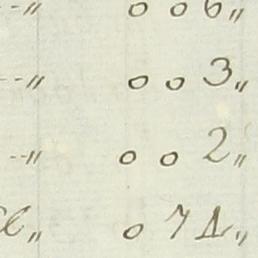 --〃 0 0 6〃
--〃 0 0 3〃
--〃 0 0 2〃
〃 0 7 1〃